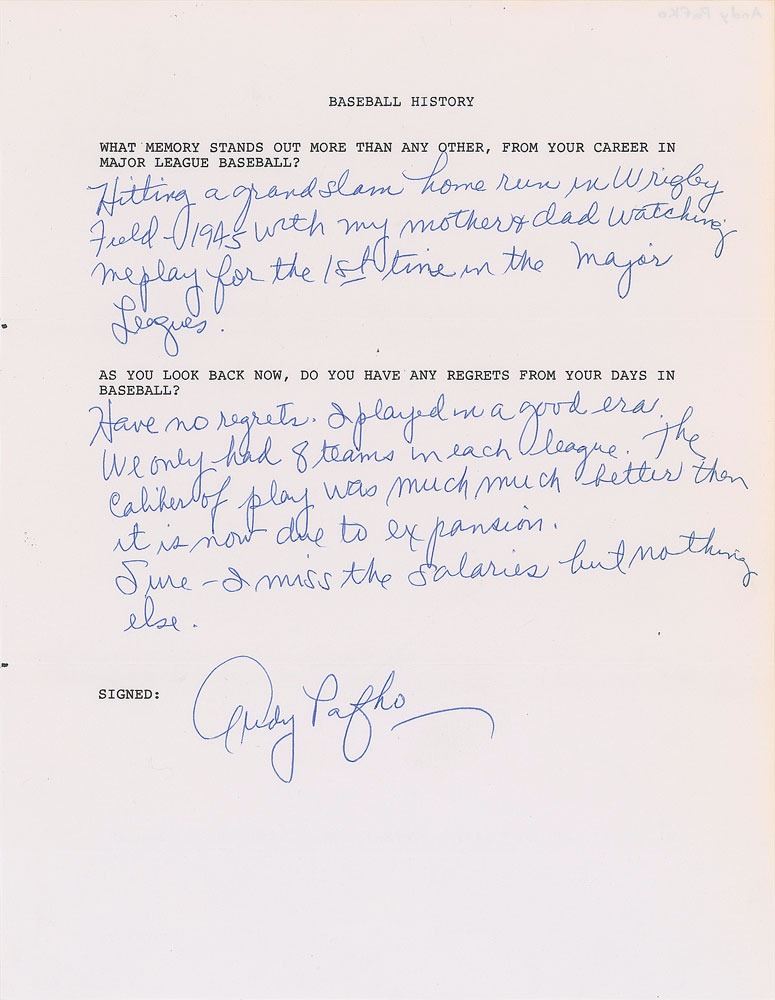 Andy Pafko
BASEBALL HISTORY
WHAT MEMORY STANDS OUT MORE THAN ANY OTHER, FROM YOUR CAREER IN
MAJOR LEAGUE BASEBALL?
Hitting a grand slam home run in Wrigley
Field - 1945 with my mother & dad watching
me play for the 1st time in the Major
Leagues.
AS YOU LOOK BACK NOW, DO YOU HAVE ANY REGRETS FROM YOUR DAYS IN
BASEBALL?
Have no regrets. I played in a good era.
We only had 8 teams in each league. The
caliber of play was much much better then
it is now due to expansion.
Sure - I miss the salaries but nothing
else.
SIGNED: Andy Pafko